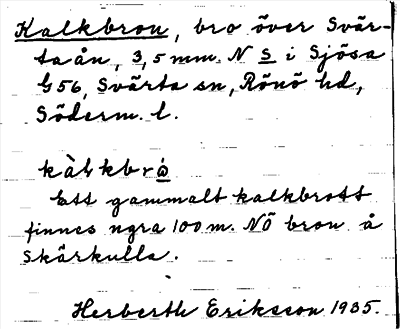 Kalkbron, bro över Svär-
taån, 3,5 mm N S i Sjösa
G 56, Svärta sn, Rönö hd,
Söderm. l.
Ett gammalt kalkbrott
finnes ngra 100 m. NÖ bron å
Skärkulla.
Herberth Eriksson 1935.